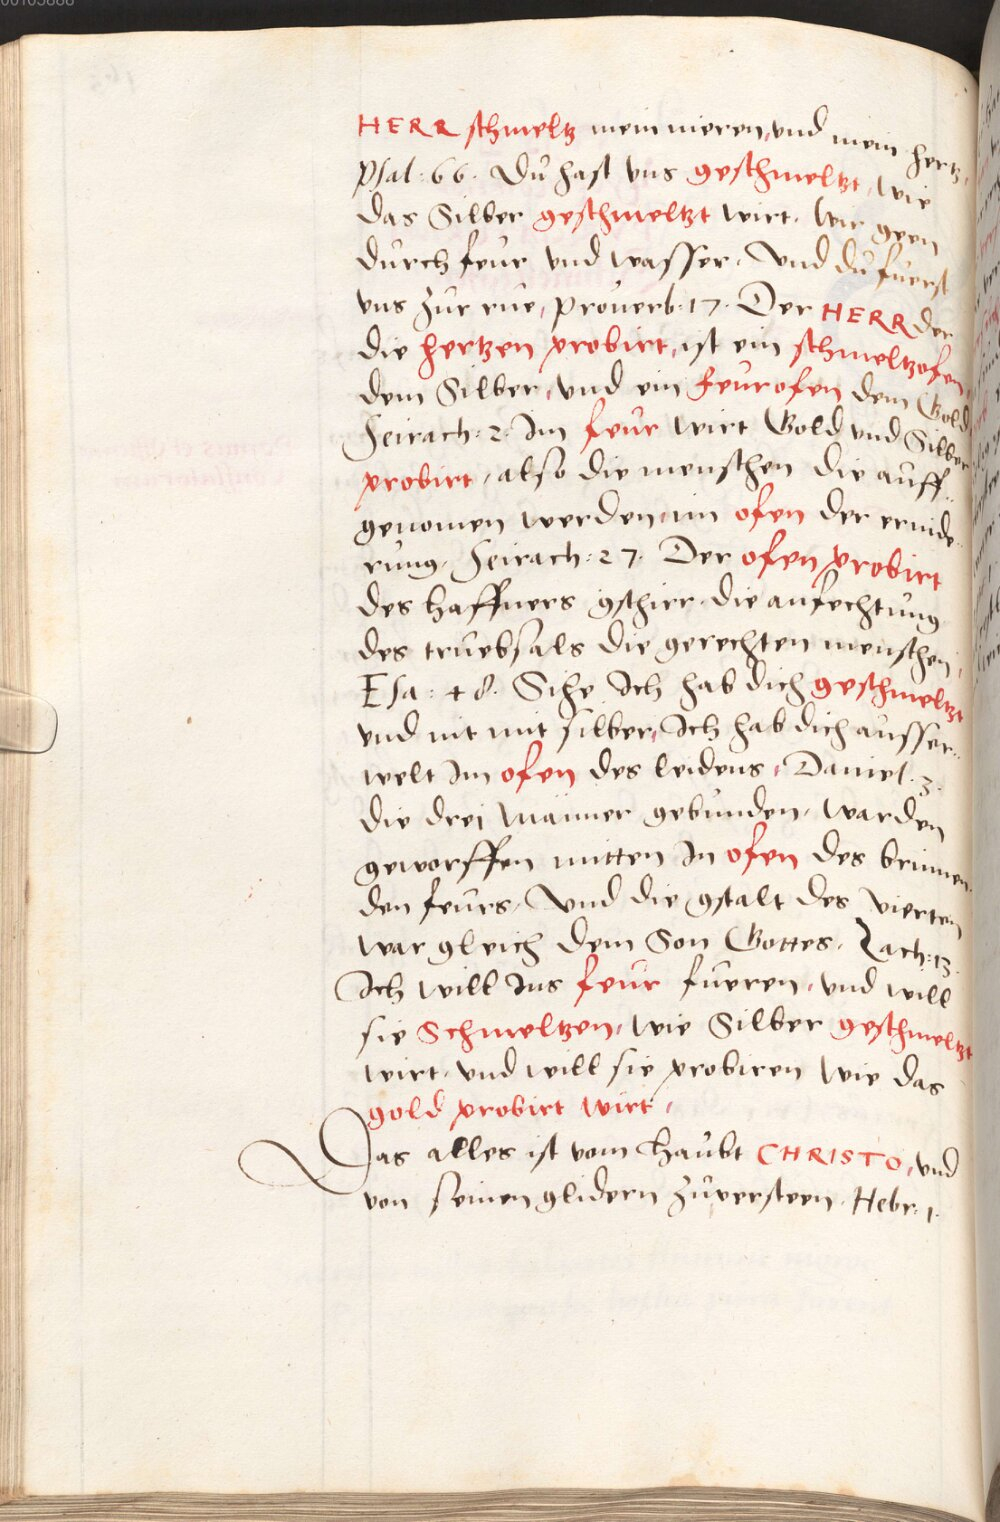 HERR schmeltz mein nieren, und mein hertz,
Psal: 66. Dů hast uns geschmeltzt, wie
das Silber geschmeltzt wirt. Wir geen
důrch feůr und wasser, Und dů fuerst
uns zůr rue, Prouerb: 17. Der HERR der
die hertzen probirt, ist ein schmeltzofen
dem Silber, und ein feůrofen dem Gold,
Seirach: 2. Im feůr wirt Gold und Silber
probirt, also die menschen die aůff..
genomen werden, im ofen der ernide..
rung. Seirach: 27. Der ofen probirt
des haffners gschirr. die anfechtůng
des truebsals die gerechten menschen,
Esa: 48. Sihe Ich hab dich geschmeltzt
und nit mit silber, Ich hab dich aůsser..
welt Im ofen des leidens, Daniel. 3.
die drej Männer gebůnden, warden
geworffen mitten In ofen des brinnen..
den feůrs, Und die gstalt des vierten
war gleich dem Son Gottes. Zach: 13.
Ich will Ins feůr fueren, und will
sie Schmeltzen, wie Silber geschmeltzt
wirt. und will sie probiren wie das
gold probirt wirt,
Das alles ist vom haůbt CHRISTO, und
von seinen glidern zůversteen. Hebr. 1.